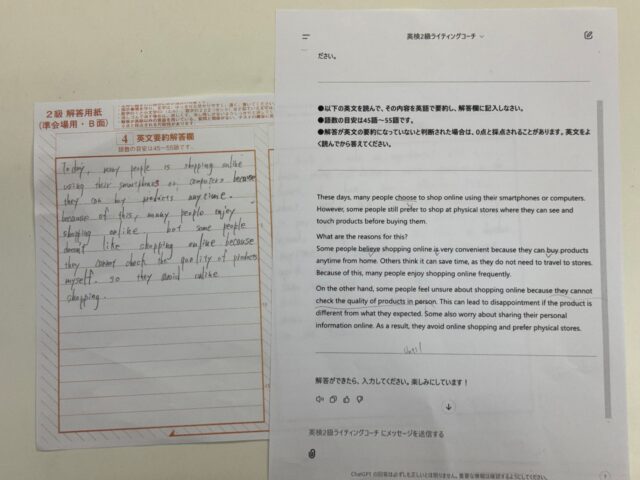 2級 解答用紙
(準会場用・B面)
4 英文要約解答欄
語数の目安は45〜55語です。
Today, many people is shopping online
using their smartphones or computers because
they can buy products anytime.
because of this, many people enjoy
shopping online, but some people
doesn't like shopping online because
they cannot check the quality of products
myself. so they avoid online
shopping.
英検2級ライティングコーチ
ださい。
●以下の英文を読んで、その内容を英語で要約し、解答欄に記入しなさい。
●語数の目安は45語〜55語です。
●解答が英文の要約になっていないと判断された場合は、0点と採点されることがあります。英文をよ
く読んでから答えてください。
These days, many people choose to shop online using their smartphones or computers.
However, some people still prefer to shop at physical stores where they can see and
touch products before buying them.
What are the reasons for this?
Some people believe shopping online is very convenient because they can buy products
anytime from home. Others think it can save time, as they do not need to travel to stores.
Because of this, many people enjoy shopping online frequently.
On the other hand, some people feel unsure about shopping online because they cannot
check the quality of products in person. This can lead to disappointment if the product is
different from what they expected. Some also worry about sharing their personal
information online. As a result, they avoid online shopping and prefer physical stores.
解答ができたら、入力してください。楽しみにしています！
英検2級ライティングコーチ にメッセージを送信する
ChatGPT の回答は必ずしも正しいとは限りません。重要な情報は確認するようにしてください。